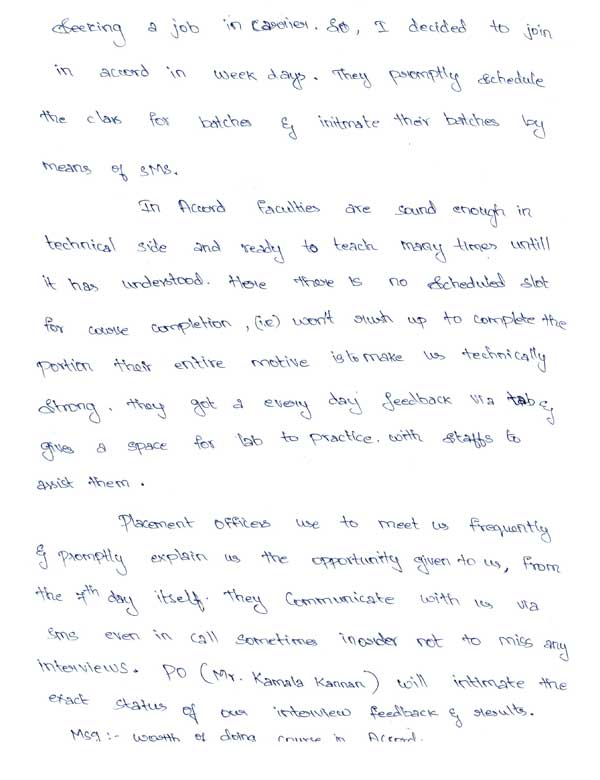 Seeking a job in carrier. So, I decided to join
in accord in week days. They promptly schedule
the class for batches & initmate their batches by
means of SMS.
In Accord Faculties are sound enough in
technical side and ready to teach many times untill
it has understood. Here there is no scheduled slot
for course completion, (i.e) won't rush up to complete the
portion their entire motive is to make us technically
strong. They got a every day feedback via tab &
gives a space for lab to practice. with staffs to
assist them.
Placement officers use to meet us frequently
& promptly explain us the opportunity given to us, from
the 7th day itself. They communicate with us via
sms even in call sometimes inorder not to miss any
interviews. PO (Mr. Kamala Kannan) will intimate the
exact status of our interview feedback & results.
Msg:- worth of doing course in Accord.